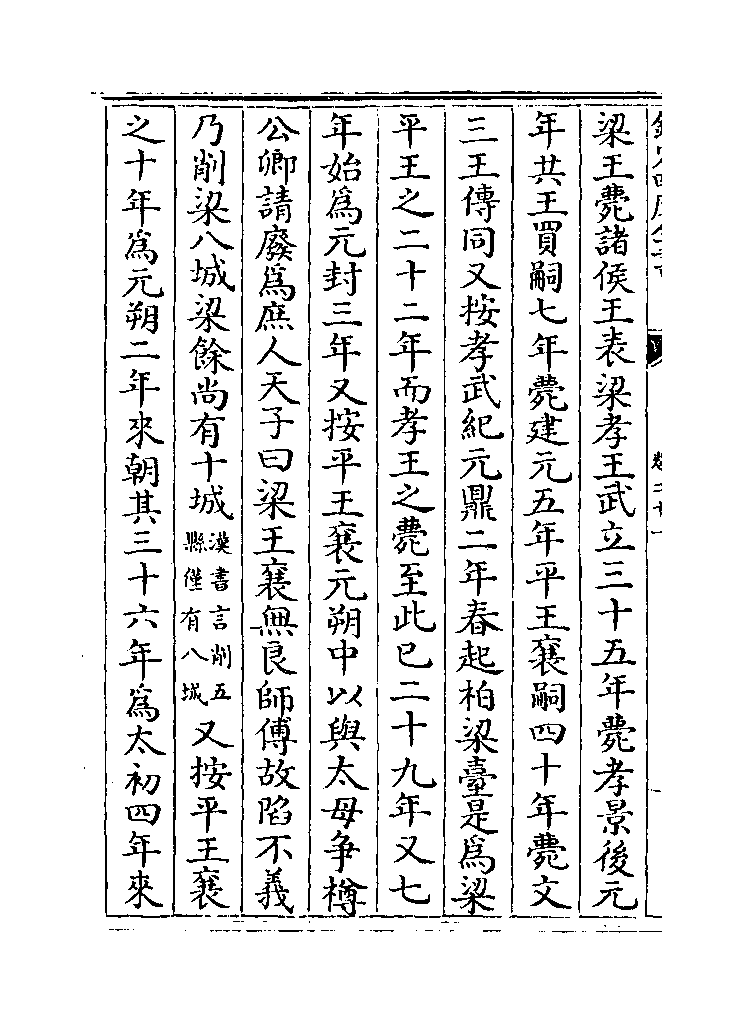 梁王薨諸侯王表梁孝王武立三十五年薨孝景後元
年共王買嗣七年薨建元五年平王襄嗣四十年薨文
三王傳同又按孝武紀元鼎二年春起柏梁臺是為梁
平王之二十二年而孝王之薨至此已二十九年又七
年始為元封三年又按平王襄元朔中以與太母争樽
公卿請廢為庶人天子曰梁王襄無良師傅故陷不義
乃削梁八城梁餘尚有十城漢書言削五縣僅有八城又按平王襄
之十年為元朔二年來朝其三十六年為太初四年來